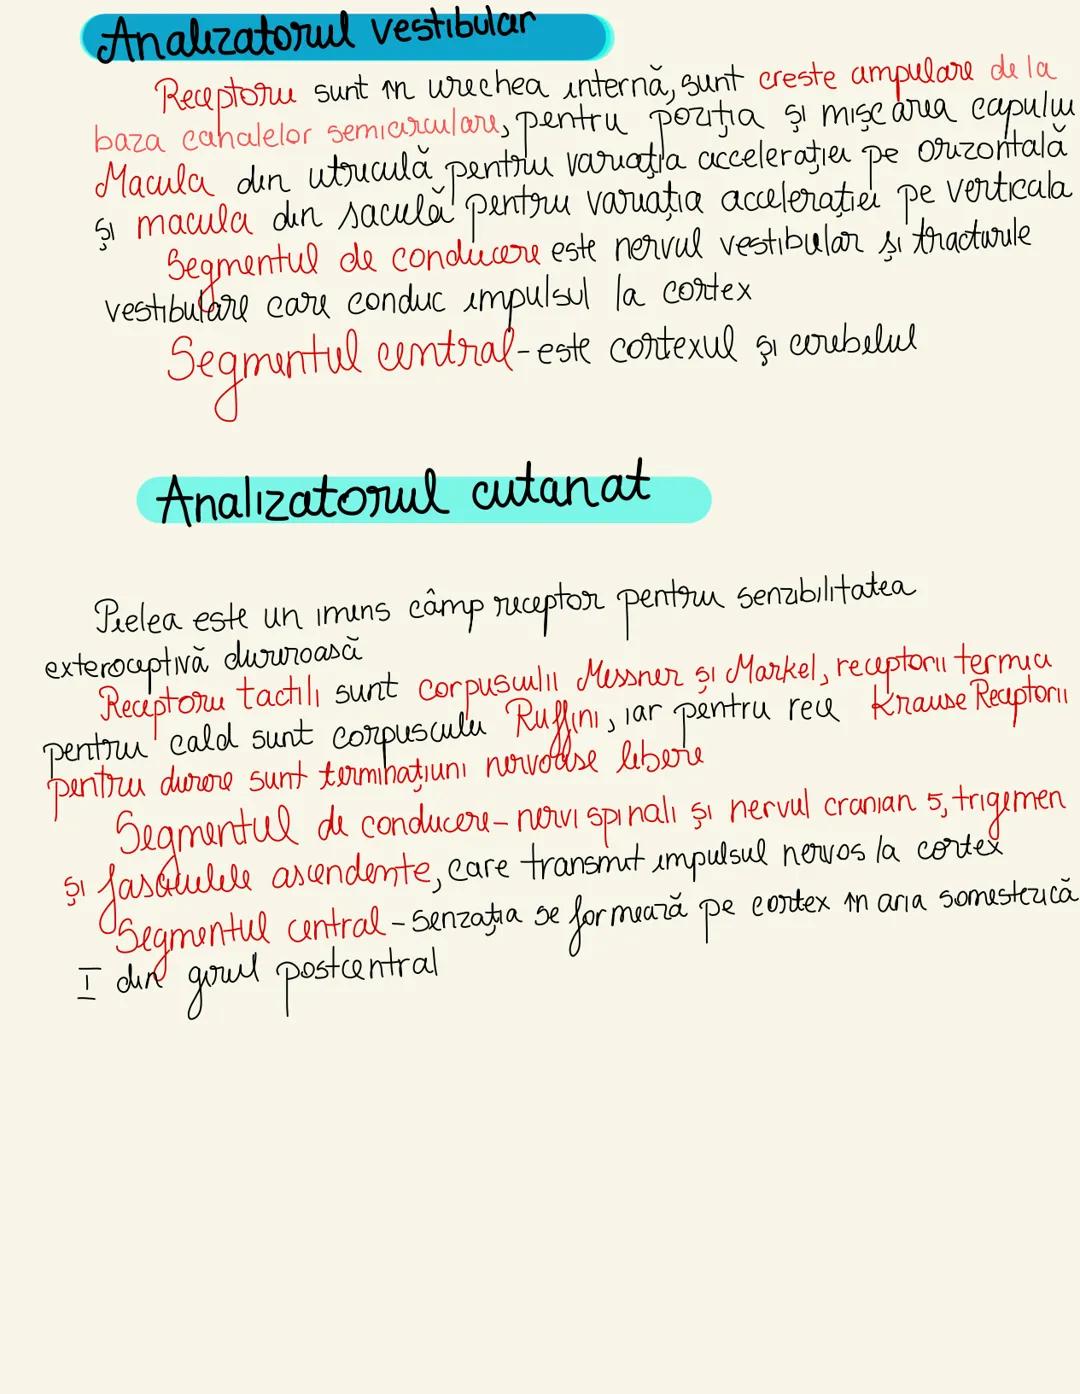 Analizatorul vestibular
Receptorii sunt în urechea internă, sunt creste ampulare de la
baza canalelor semicirculare, pentru poziția și mișcarea capului
Macula din utriculă pentru variația accelerației pe orizontală
și macula din saculă pentru variația accelerației pe verticala
Segmentul de conducere este nervul vestibular și tracturile
vestibulare care conduc impulsul la cortex
Segmentul central-este cortexul și cerebelul
Analizatorul cutanat
Pielea este un imens câmp receptor pentru senzibilitatea
exteroceptivă dururoasă
Receptorii tactili sunt corpusculii Messner și Markel, receptorii termici
pentru cald sunt corpusculii Ruffini, iar pentru rece Krause Receptorii
pentru durere sunt terminațiuni nervoase libere
Segmentul de conducere-nervi spinali și nervul cranian 5, trigemen
și fasciculele ascendente, care transmit impulsul nervos la cortex
Segmentul central-Senzația se formează pe cortex în aria somestezică
I din girul postcentral